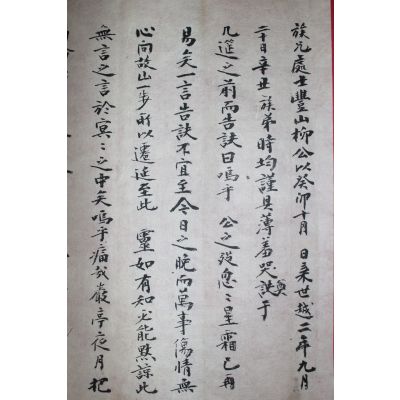 族兄處士豐山柳公以癸卯十月 日棄世越二年九月
二十日辛丑族弟時均謹具薄羞哭奠訣于
几筵之前而告訣曰嗚乎 公之歿怱〻星霜已再
易矣一言告訣不宜至今日之晚而萬事傷情無
心向故山一步所以遷延至此 靈如有知必能默諒此
無言之言於冥〻之中矣嗚乎痛哉巖亭夜月把